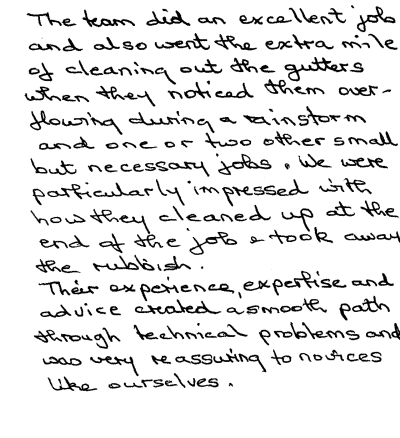 The team did an excellent job
and also went the extra mile
of cleaning out the gutters
when they noticed them over-
flowing during a rainstorm
and one or two other small
but necessary jobs. We were
particularly impressed with
how they cleaned up at the
end of the job & took away
the rubbish.
Their experience, expertise and
advice created a smooth path
through technical problems and
was very reassuring to novices
like ourselves.